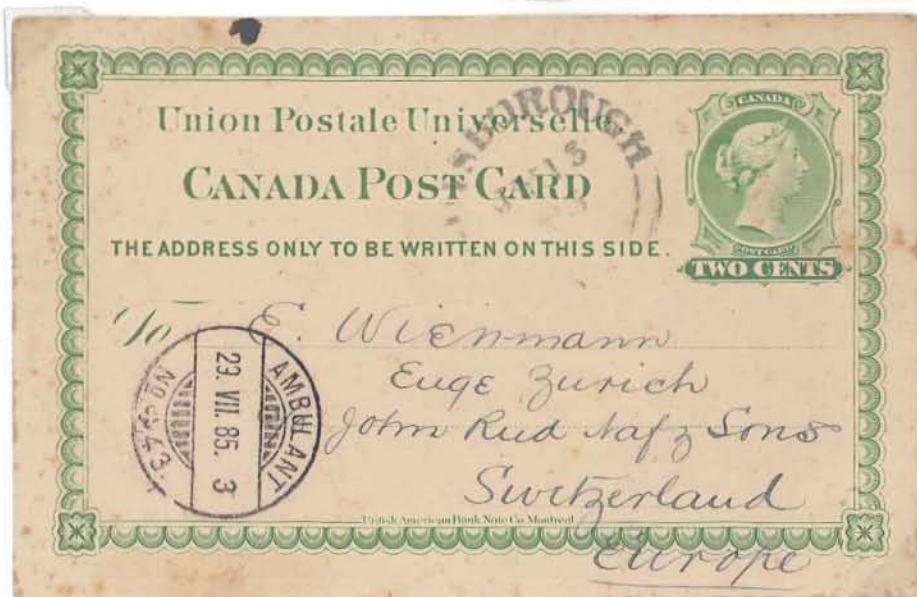 Union Postale Universelle.
CANADA POST CARD
THE ADDRESS ONLY TO BE WRITTEN ON THIS SIDE.
CANADA
POST CARD
TWO CENTS
SBOROUGH
To E. Wienmann
Euge Zurich
John Rud Nafz Sons
Switzerland
Europe
AMBULANT
23. VII. 85. 3
No 43.
British American Bank Note Co. Montreal